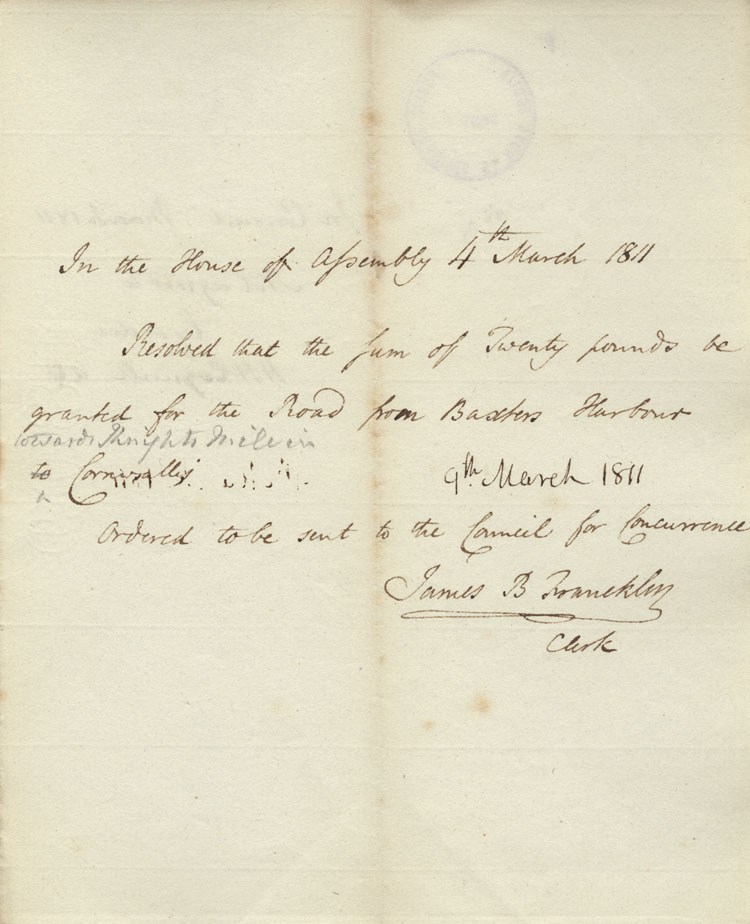 In the House of Assembly 4th March 1811
Resolved that the sum of Twenty pounds be
granted for the Road from Baxters Harbour
towards Knights Mile in
to Cornwallis 9th March 1811
Ordered to be sent to the Council for Concurrence
James B Francklin
Clerk